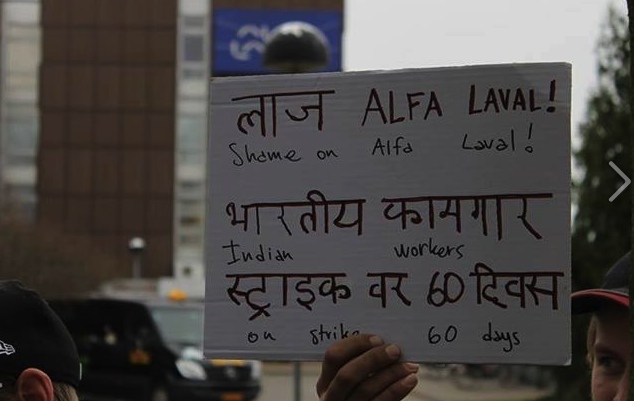 लाज ALFA LAVAL!
Shame on Alfa Laval!
भारतीय कामगार
Indian workers
स्ट्राइक वर 60 दिवस
on strike 60 days